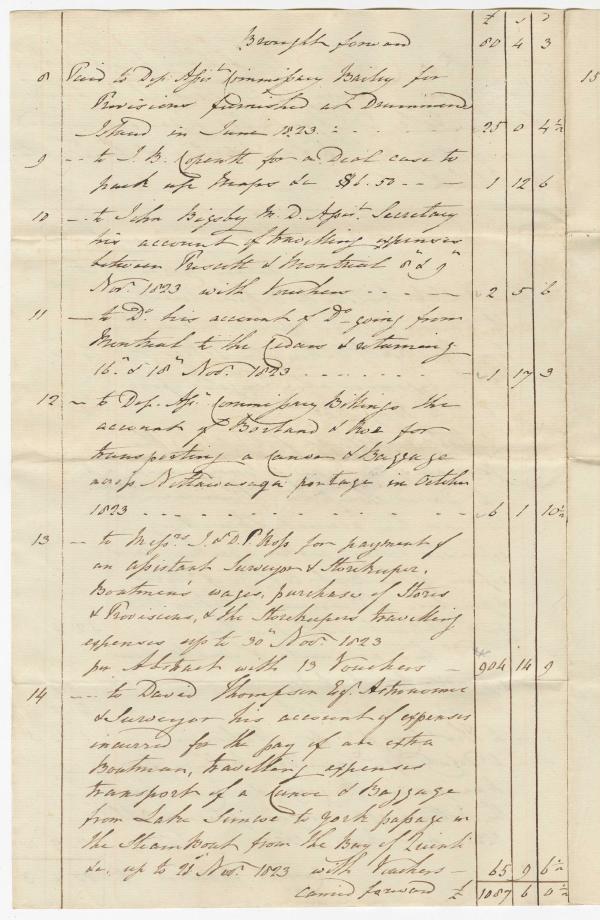 £ s d
Brought forward 80 4 3
8 Paid to Dep. Assist. Commissary Bailey for
Provisions furnished at Drummond
Island in June 1823 - - - 25 0 4½
9 -- to J. B. for a Deal case to
pack up Maps &c $6.50 - - - 1 12 6
10 -- to John Bigsby M.D. Assist. Secretary
his account of travelling expenses
between Prescott & Montreal 8" & 9"
Nov. 1823 with Vouchers - - - 2 5 6
11 -- to Do. his account of Do. going from
Montreal to the Cedars & returning
16" & 18" Nov. 1823 - - - 1 17 3
12 -- to Dep. Ass. Commissary Billings the
account of Borland & Roe for
transporting a Canoe & Baggage
across Nottawasaga portage in October
1823 - - - 6 1 10½
13 -- to Messrs. J. & D. P. Ross for payment of
an assistant Surveyor & Storekeeper,
Boatmen's wages, purchase of Stores
& Provisions, & the Storekeepers travelling
expenses up to 30" Nov. 1823
per Abstract with 13 Vouchers - 904 14 9
14 -- to David Thompson Esq. Astronomer
& Surveyor his account of expenses
incurred for the pay of an extra
Boatman, travelling expenses
transport of a Canoe & Baggage
from Lake Simcoe to York passage in
the Steam Boat from the Bay of Quinti
&c, up to 21" Nov. 1823 with Vouchers - 65 9 6½
Carried forward £ 1087 6 0½
15